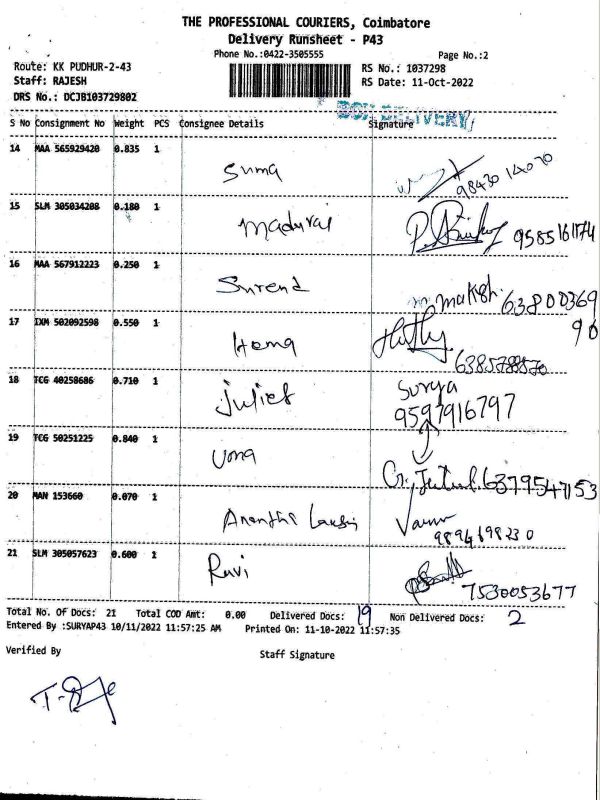 THE PROFESSIONAL COURIERS, Coimbatore
Delivery Runsheet - P43
Phone No.:0422-3505555 Page No.:2
Route: KK PUDHUR-2-43 RS No.: 1037298
Staff: RAJESH RS Date: 11-Oct-2022
DRS No.: DCJB103729802
BOX DELIVERY
S No Consignment No Weight PCS Consignee Details Signature
14 MAA 565929420 0.835 1
Suma 98430 14070
15 SLM 305034208 0.180 1
Madurai 9585161174
16 MAA 567912223 0.250 1
Surend Makesh. 63800369
96
17 IXM 502092598 0.550 1
Hema
18 TCG 40258686 0.710 1
Juliet Surya
9597916797
19 TCG 50251225 0.840 1
Uma 6379547153
20 MAN 153660 0.070 1
Ananthi
9894698230
21 SLM 305057623 0.600 1
Ravi
7530053677
Total No. Of Docs: 21 Total COD Amt: 0.00 Delivered Docs: 19 Non Delivered Docs: 2
Entered By :SURYAP43 10/11/2022 11:57:25 AM Printed On: 11-10-2022 11:57:35
Verified By Staff Signature